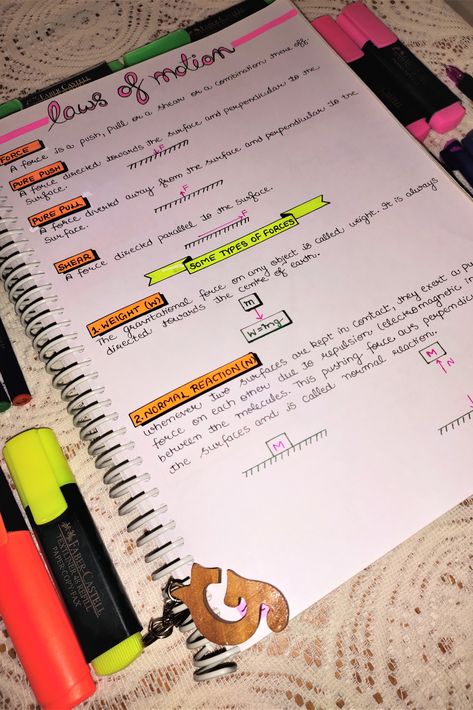 laws of motion
FORCE
A force is a push, pull or a shear or a combination there off.
PURE PUSH
A force directed towards the surface and perpendicular to the
surface.
F
PURE PULL
A force directed away from the surface and perpendicular to the
surface.
F
SHEAR
A force directed parallel to the surface.
F
SOME TYPES OF FORCES
1. WEIGHT (W)
The gravitational force on any object is called weight. It is always
directed towards the centre of earth.
m
W=mg
2. NORMAL REACTION (N)
Whenever two surfaces are kept in contact, they exert a
force on each other due to repulsion (electromagnetic in
between the molecules. This pushing force acts
the surfaces and is called normal reaction.
M
M
N
FABER-CASTELL
TEXTLINER 48 REFILL
PAPER-COPY-FAX
FABER CASTELL